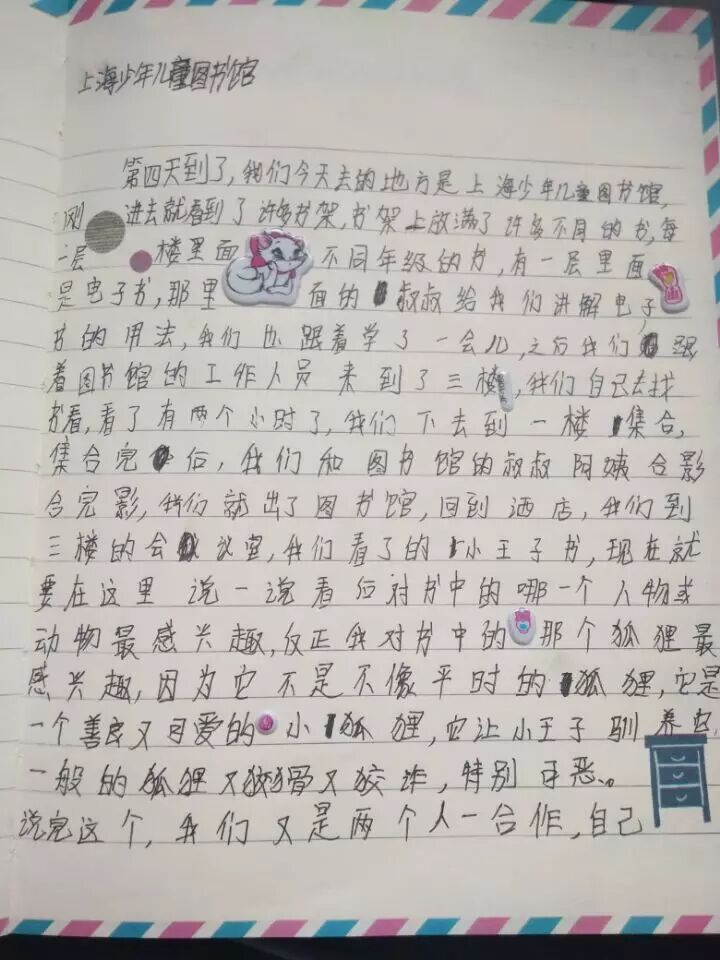 上海少年儿童图书馆
第四天到了,我们今天去的地方是上海少年儿童图书馆,
刚进去就看到了许多书架,书架上放满了许多不同的书,每
一层楼里面不同年级的书,有一层里面
是电子书,那里面的叔叔给我们讲解电子
书的用法,我们也跟着学了一会儿,之后我们跟
着图书馆的工作人员来到了三楼,我们自己去找
书看,看了有两个小时了,我们下去到一楼集合,
集合完后,我们和图书馆的叔叔阿姨合影
合完影,我们就出了图书馆,回到酒店,我们到
三楼的会议室,我们看了的小王子书,现在就
要在这里说一说看后对书中的哪一个人物或
动物最感兴趣,反正我对书中的那个狐狸最
感兴趣,因为它不是不像平时的狐狸,它是
一个善良又可爱的小狐狸,它让小王子驯养它,
一般的狐狸又狡猾又狡诈,特别可恶。
说完这个,我们又是两个人一合作,自己